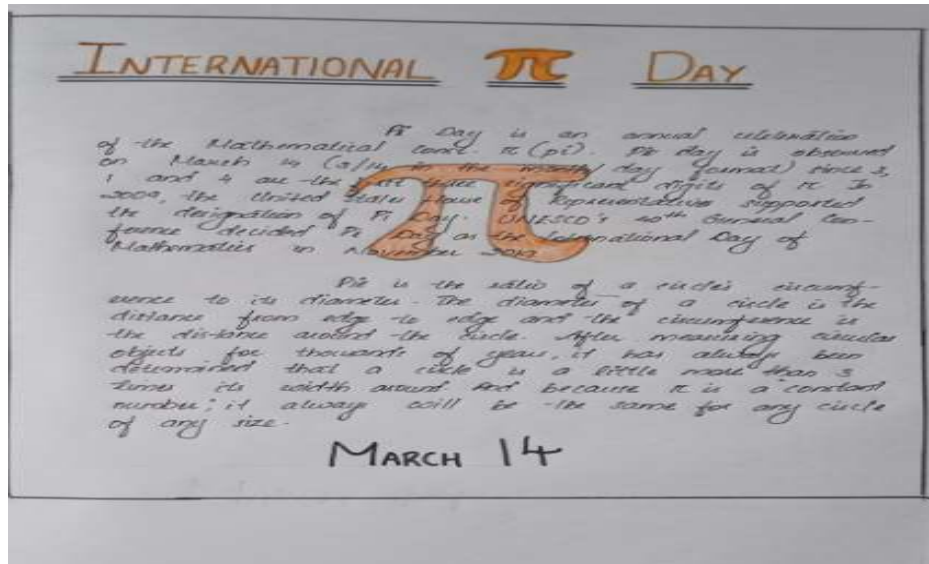 INTERNATIONAL π DAY
Pi Day is an annual celebration
of the Mathematical const. π (pi). Pi day is observed
on March 14 (3/14 in the month/day format) since 3,
1 and 4 are the first three significant digits of π In
2009, the United States House of Representatives supported
the designation of Pi Day. UNESCO's 40th General Con-
ference decided Pi Day as the International Day of
Mathematics in November 2019
Pie is the ratio of a circles circumf-
erence to its diameter. The diameter of a circle is the
distance from edge to edge and the circumference is
the distance around the circle. After measuring circular
objects for thousands of years, it has always been
determined that a circle is a little more than 3
times its width around And because π is a constant
number; it always will be the same for any circle
of any size.
MARCH 14